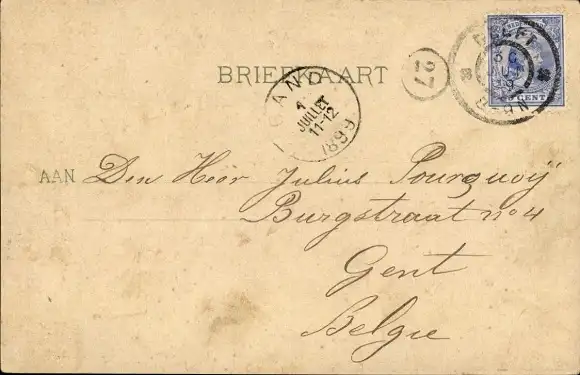 BRIEFKAART
GAND
1
JUILLET
11-12
1899
27
DELFT
CENT
AAN Den Heer Julius Pourquoÿ
Burgstraat no 4
Gent
Belgie